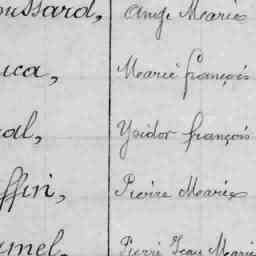 oussard, Ange Marie
uca, Marie françois
al, Ysidor françois
ffin, Pierre Marie
mel, Pierre Jean Marie